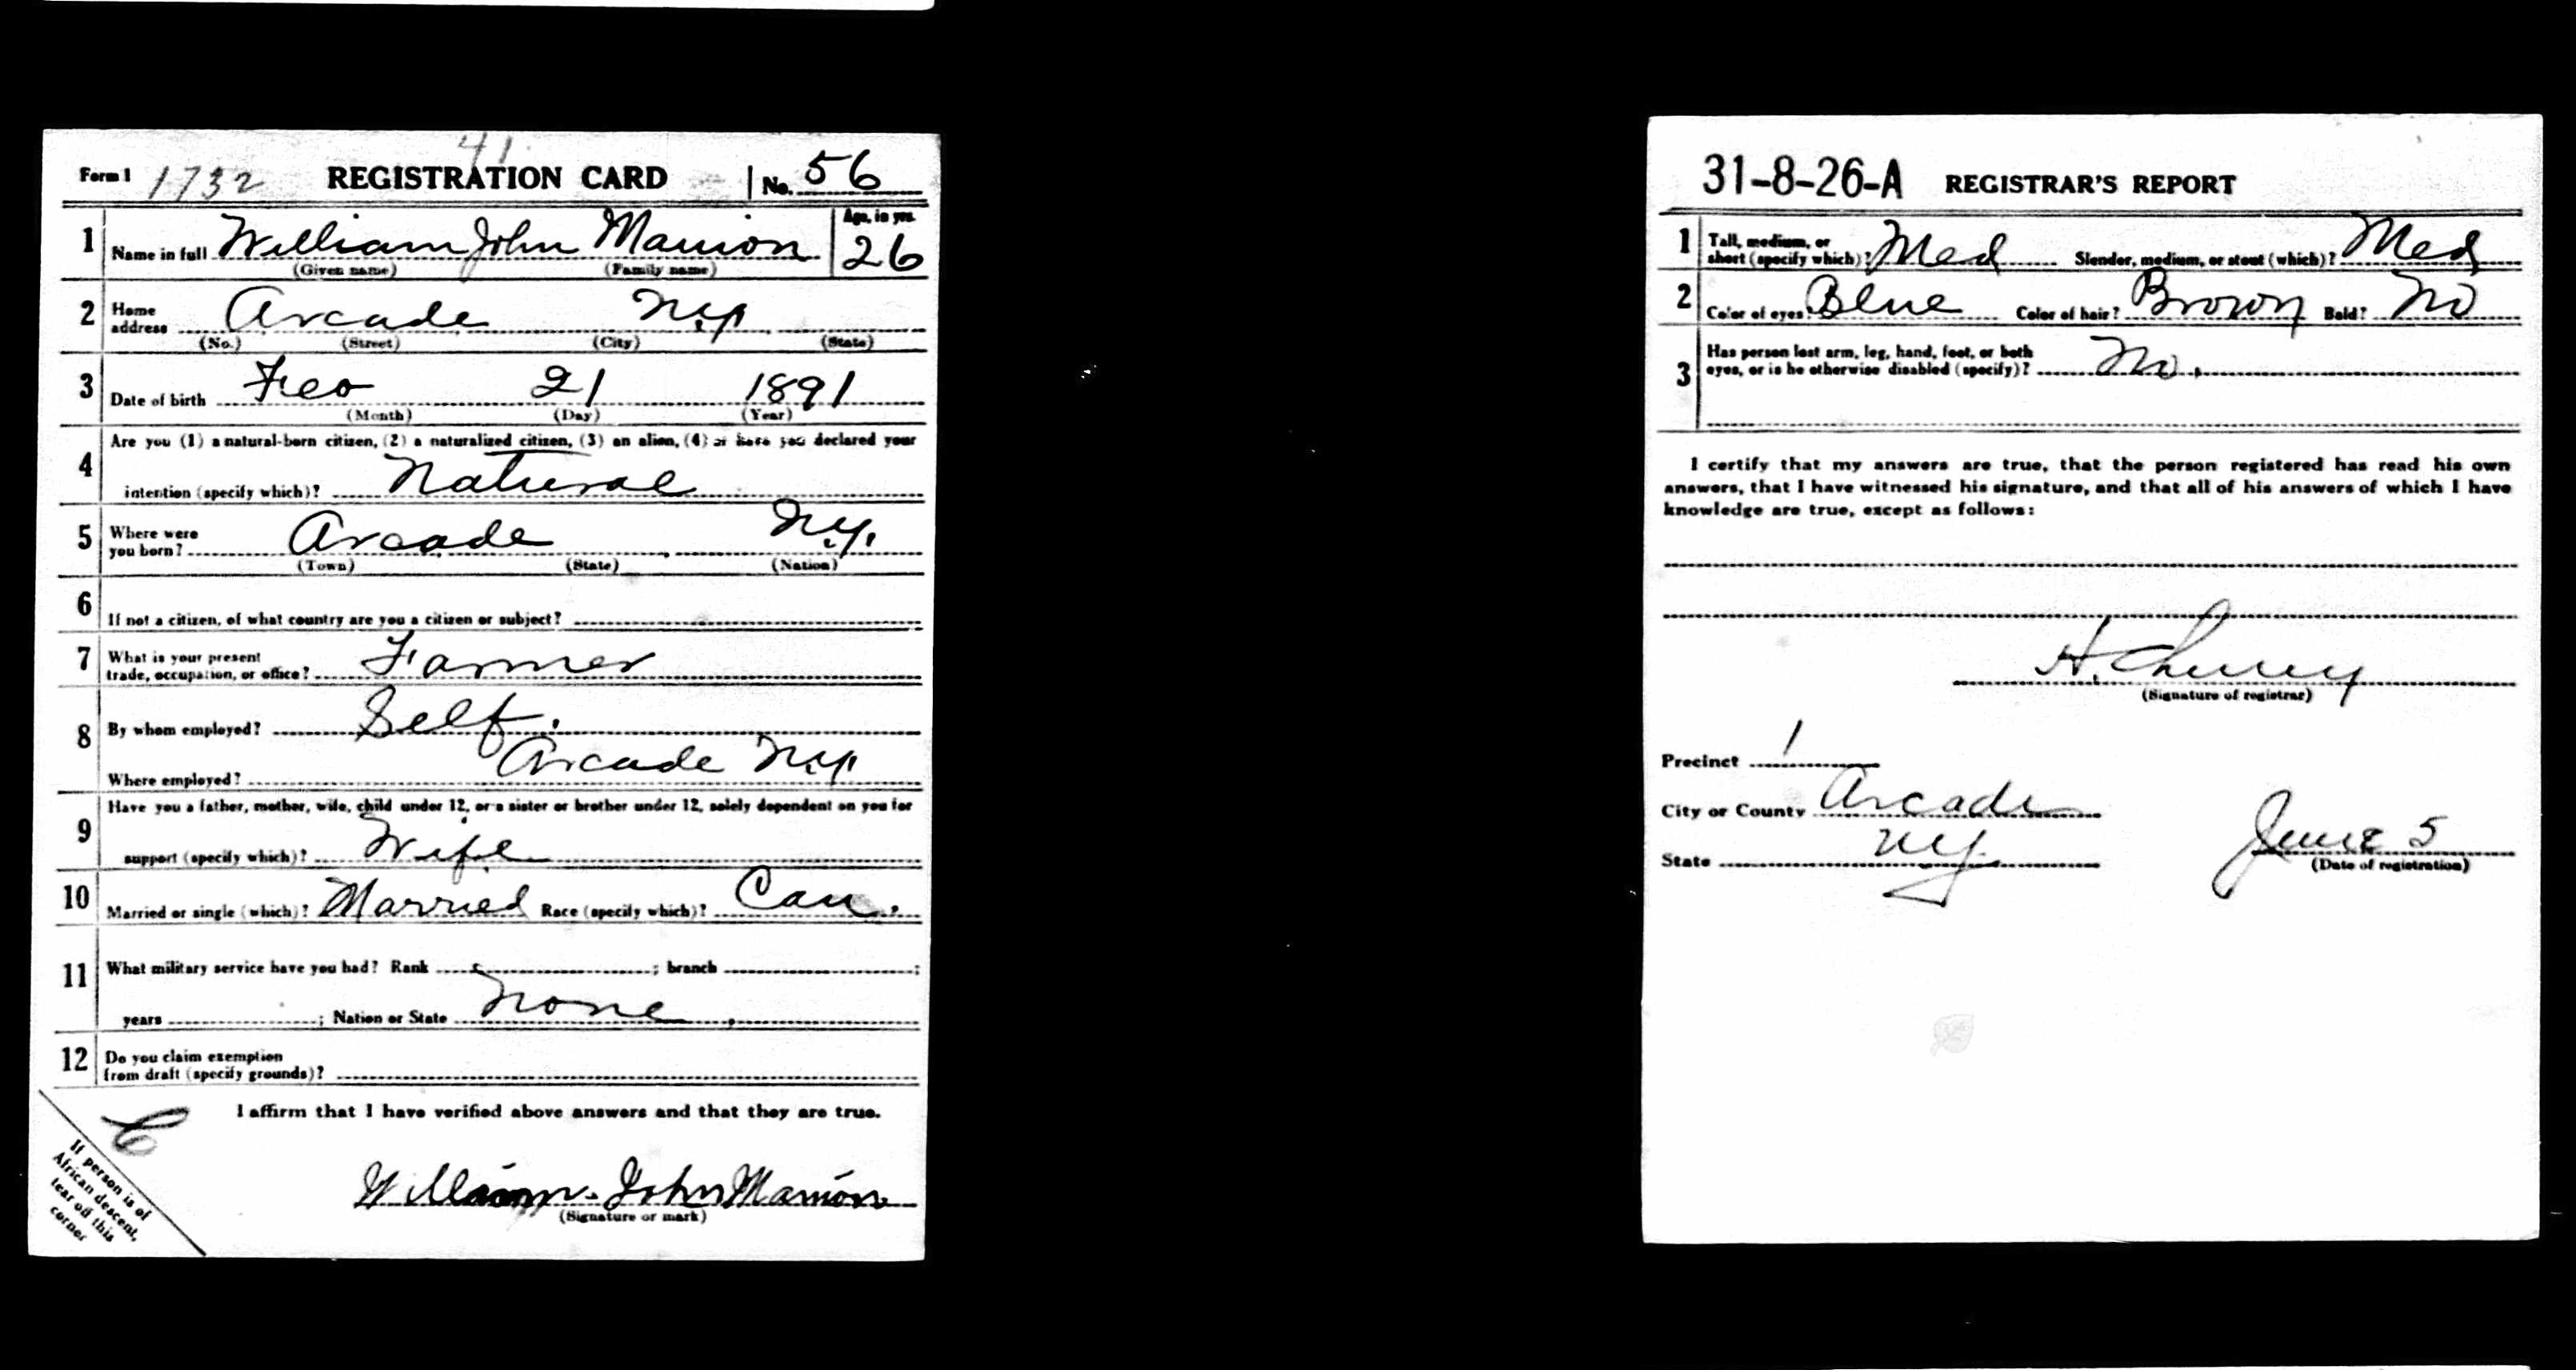 41
Form 1 1732 REGISTRATION CARD No. 56
1 Name in full William John Manion Age, in yrs. 26
(Given name) (Family name)
2 Home address Arcade N.Y.
(No.) (Street) (City) (State)
3 Date of birth Feb 21 1891
(Month) (Day) (Year)
4 Are you (1) a natural-born citizen, (2) a naturalized citizen, (3) an alien, (4) or have you declared your
intention (specify which)? Natural
5 Where were you born? Arcade N.Y.
(Town) (State) (Nation)
6 If not a citizen, of what country are you a citizen or subject?
7 What is your present
trade, occupation, or office? Farmer
8 By whom employed? Self.
Where employed? Arcade N.Y.
9 Have you a father, mother, wife, child under 12, or a sister or brother under 12, solely dependent on you for
support (specify which)? Wife
10 Married or single (which)? Married Race (specify which)? Cau.
11 What military service have you had? Rank ; branch ;
years ; Nation or State None
12 Do you claim exemption
from draft (specify grounds)?
I affirm that I have verified above answers and that they are true.
William John Manion
(Signature or mark)
If person is of
African descent,
tear off this
corner
31-8-26-A REGISTRAR'S REPORT
1 Tall, medium, or
short (specify which)? Med Slender, medium, or stout (which)? Med
2 Color of eyes? Blue Color of hair? Brown Bald? No
3 Has person lost arm, leg, hand, foot, or both
eyes, or is he otherwise disabled (specify)? No.
I certify that my answers are true, that the person registered has read his own
answers, that I have witnessed his signature, and that all of his answers of which I have
knowledge are true, except as follows:
H.
(Signature of registrar)
Precinct 1
City or County Arcade
State N.Y. June 5
(Date of registration)